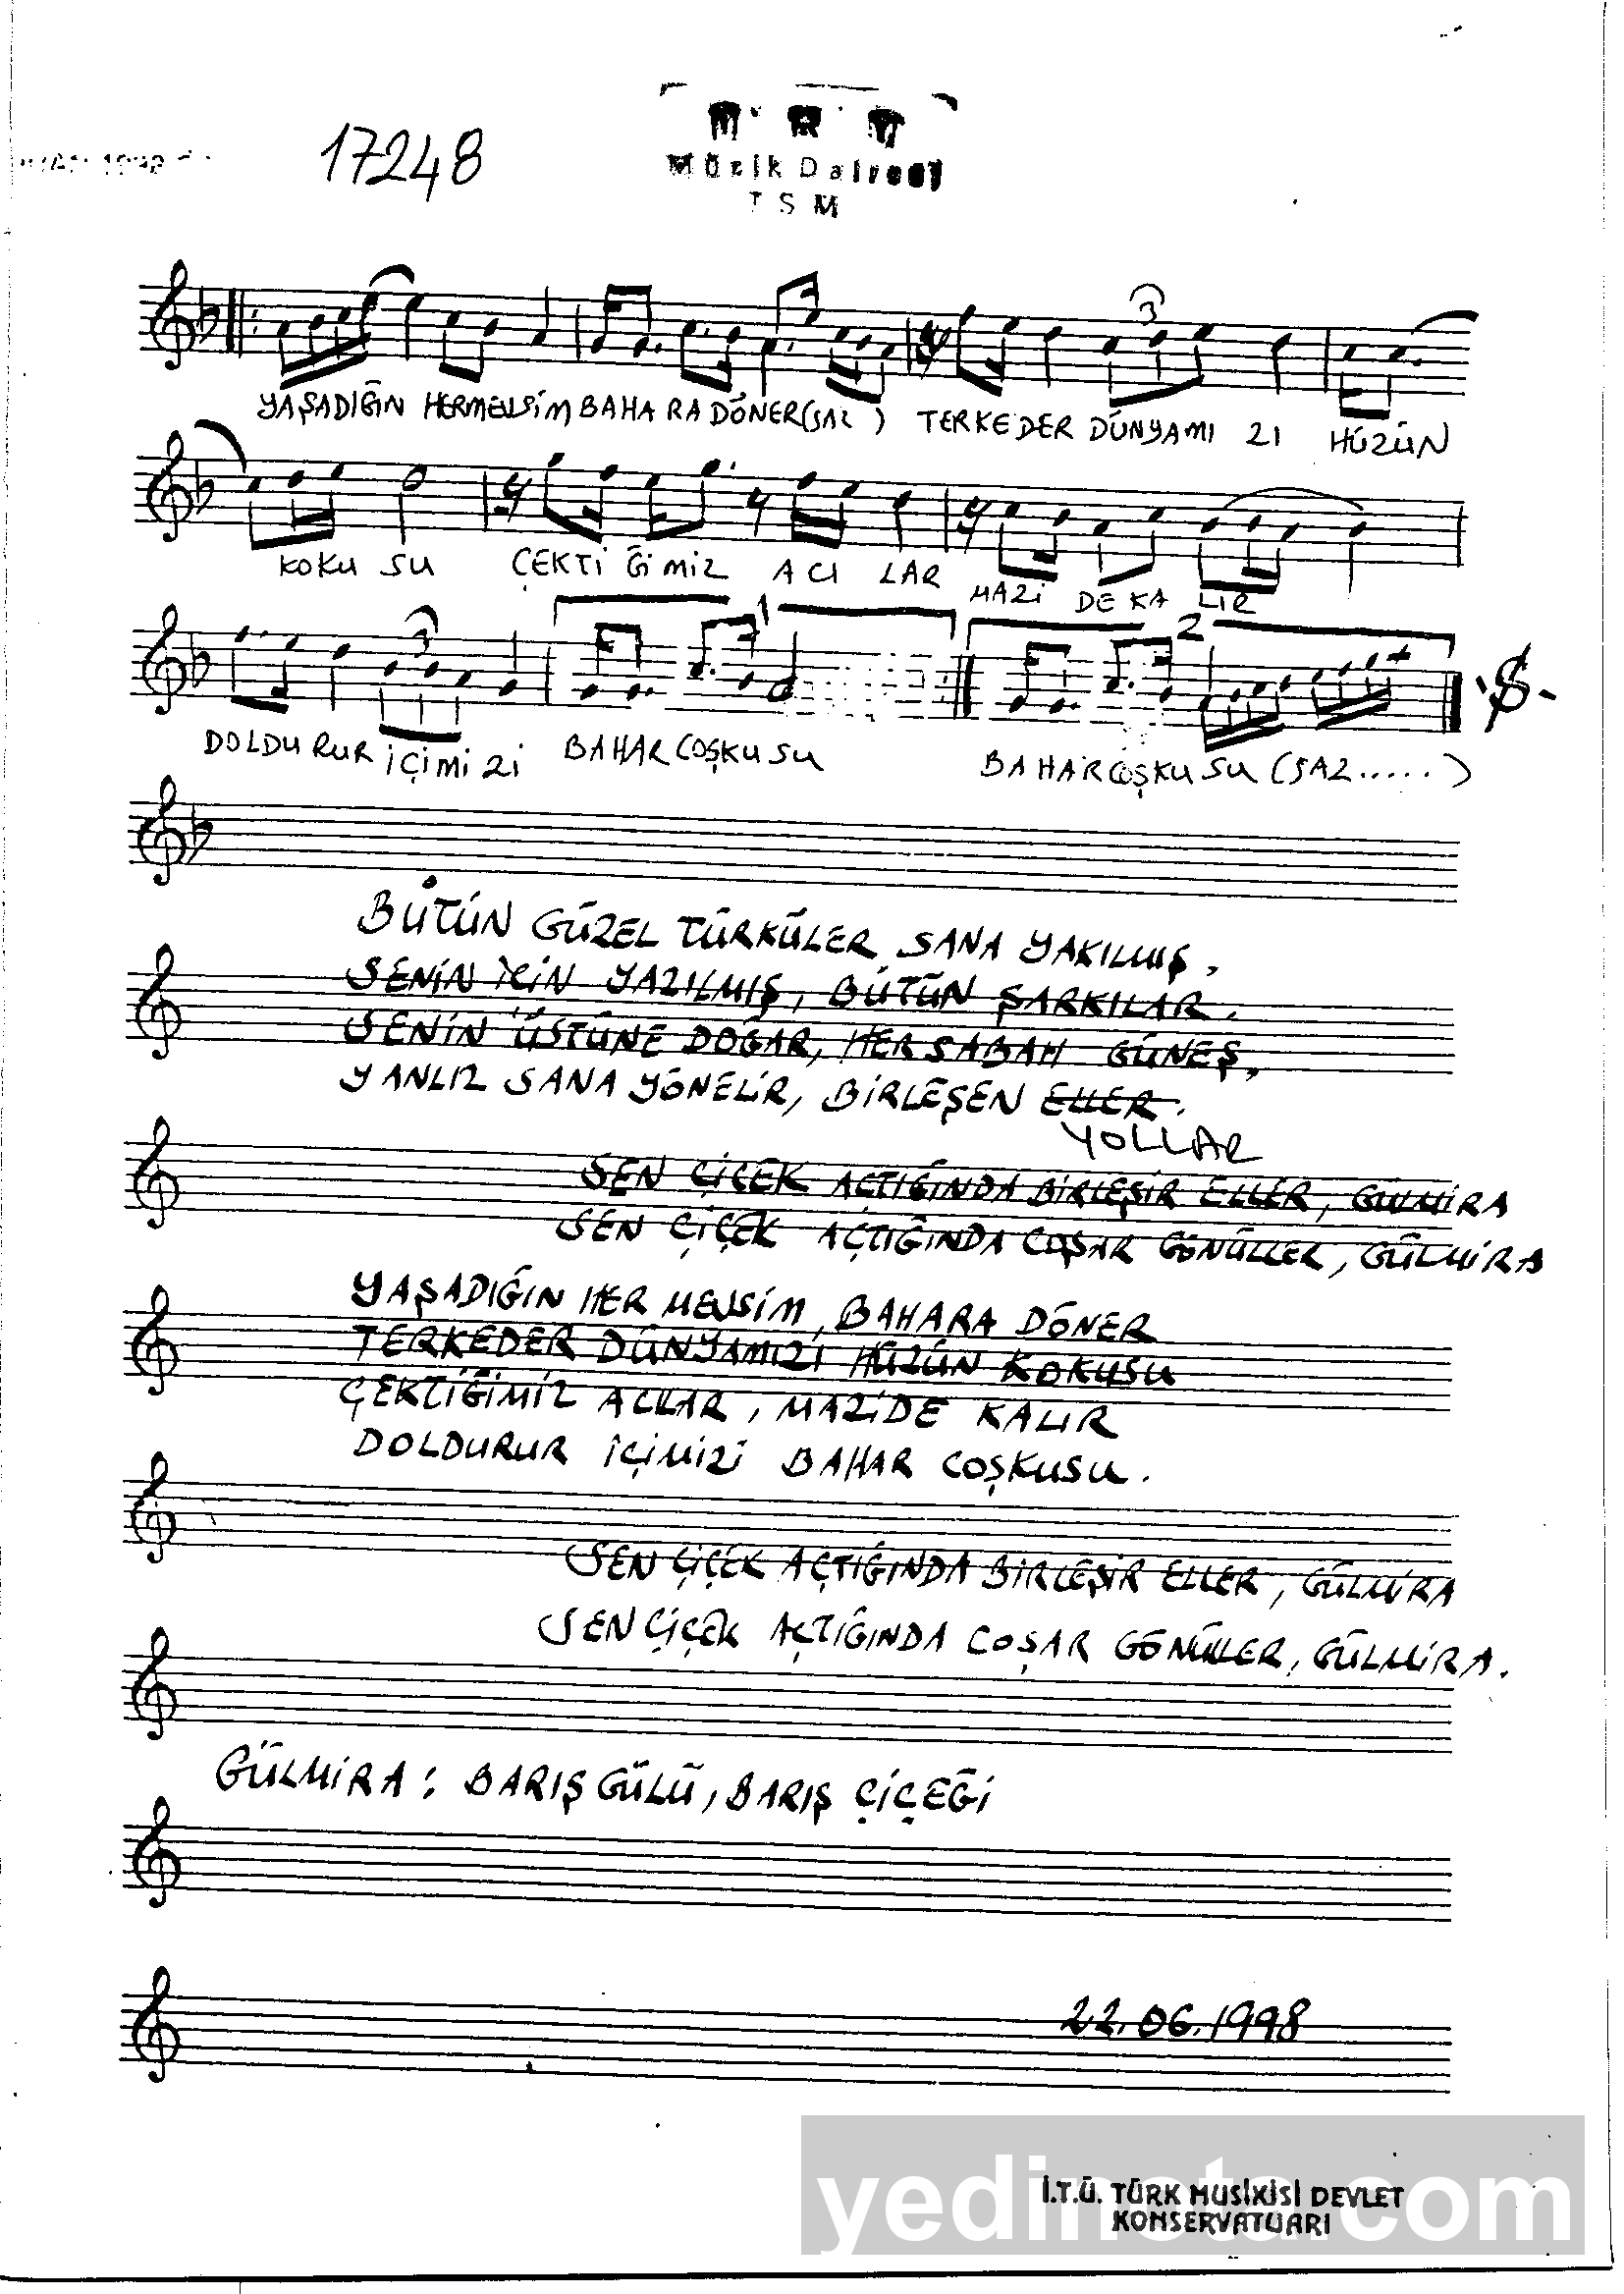 17248
T R T
Müzik Dairesi
TSM
YAŞADIĞIN HERMEVSİM BAHA RA DÖNER(SAZ ) TERKEDER DÜNYAMI ZI HÜZÜN
3
KOKU SU ÇEKTİ ĞİMİZ ACI LAR MAZİ DE KA LIR
3 1 2
DOLDU RUR İÇİMİ Zİ BAHAR COŞKU SU BAHAR COŞKU SU (SAZ.....)
BÜTÜN GÜZEL TÜRKÜLER SANA YAKILMIŞ,
SENİN İÇİN YAZILMIŞ, BÜTÜN ŞARKILAR.
SENİN ÜSTÜNE DOĞAR, HER SABAH GÜNEŞ,
YANLIZ SANA YÖNELİR, BİRLEŞEN ELLER.
YOLLAR
SEN ÇİÇEK AÇTIĞINDA BİRLEŞİR ELLER, GÜLMİRA
SEN ÇİÇEK AÇTIĞINDA COŞAR GÖNÜLLER, GÜLMİRA
YAŞADIĞIN HER MEVSİM, BAHARA DÖNER
TERKEDER DÜNYAMIZI HÜZÜN KOKUSU
ÇEKTİĞİMİZ ACILAR, MAZİDE KALIR
DOLDURUR İÇİMİZİ BAHAR COŞKUSU.
SEN ÇİÇEK AÇTIĞINDA BİRLEŞİR ELLER, GÜLMİRA
SEN ÇİÇEK AÇTIĞINDA COŞAR GÖNÜLLER, GÜLMİRA.
GÜLMİRA: BARIŞ GÜLÜ, BARIŞ ÇİÇEĞİ
22.06.1998
yedinota.com
İ.T.Ü. TÜRK MUSİKİSİ DEVLET
KONSERVATUARI